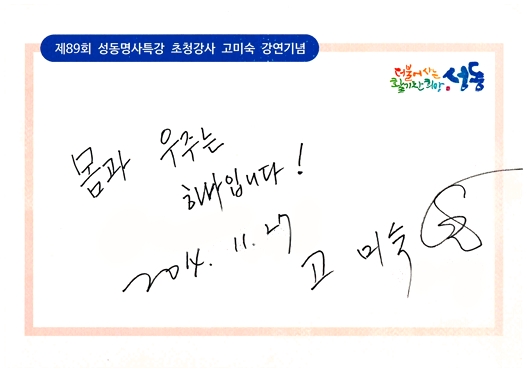 제89회 성동명사특강 초청강사 고미숙 강연기념
더불어 사는
활기찬 희망 성동
몸과 우주는
하나입니다!
2014. 11. 27
고 미숙